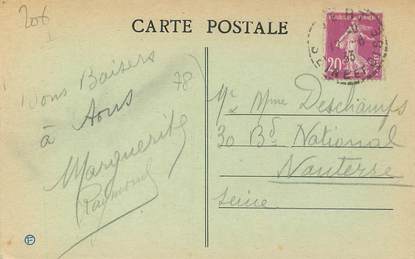 206
CARTE POSTALE
20c
Bons Baisers
à Tous
78
Marguerite
Raymond
Mr Mme Deschamps
30 Bd National
Nanterre
Seine